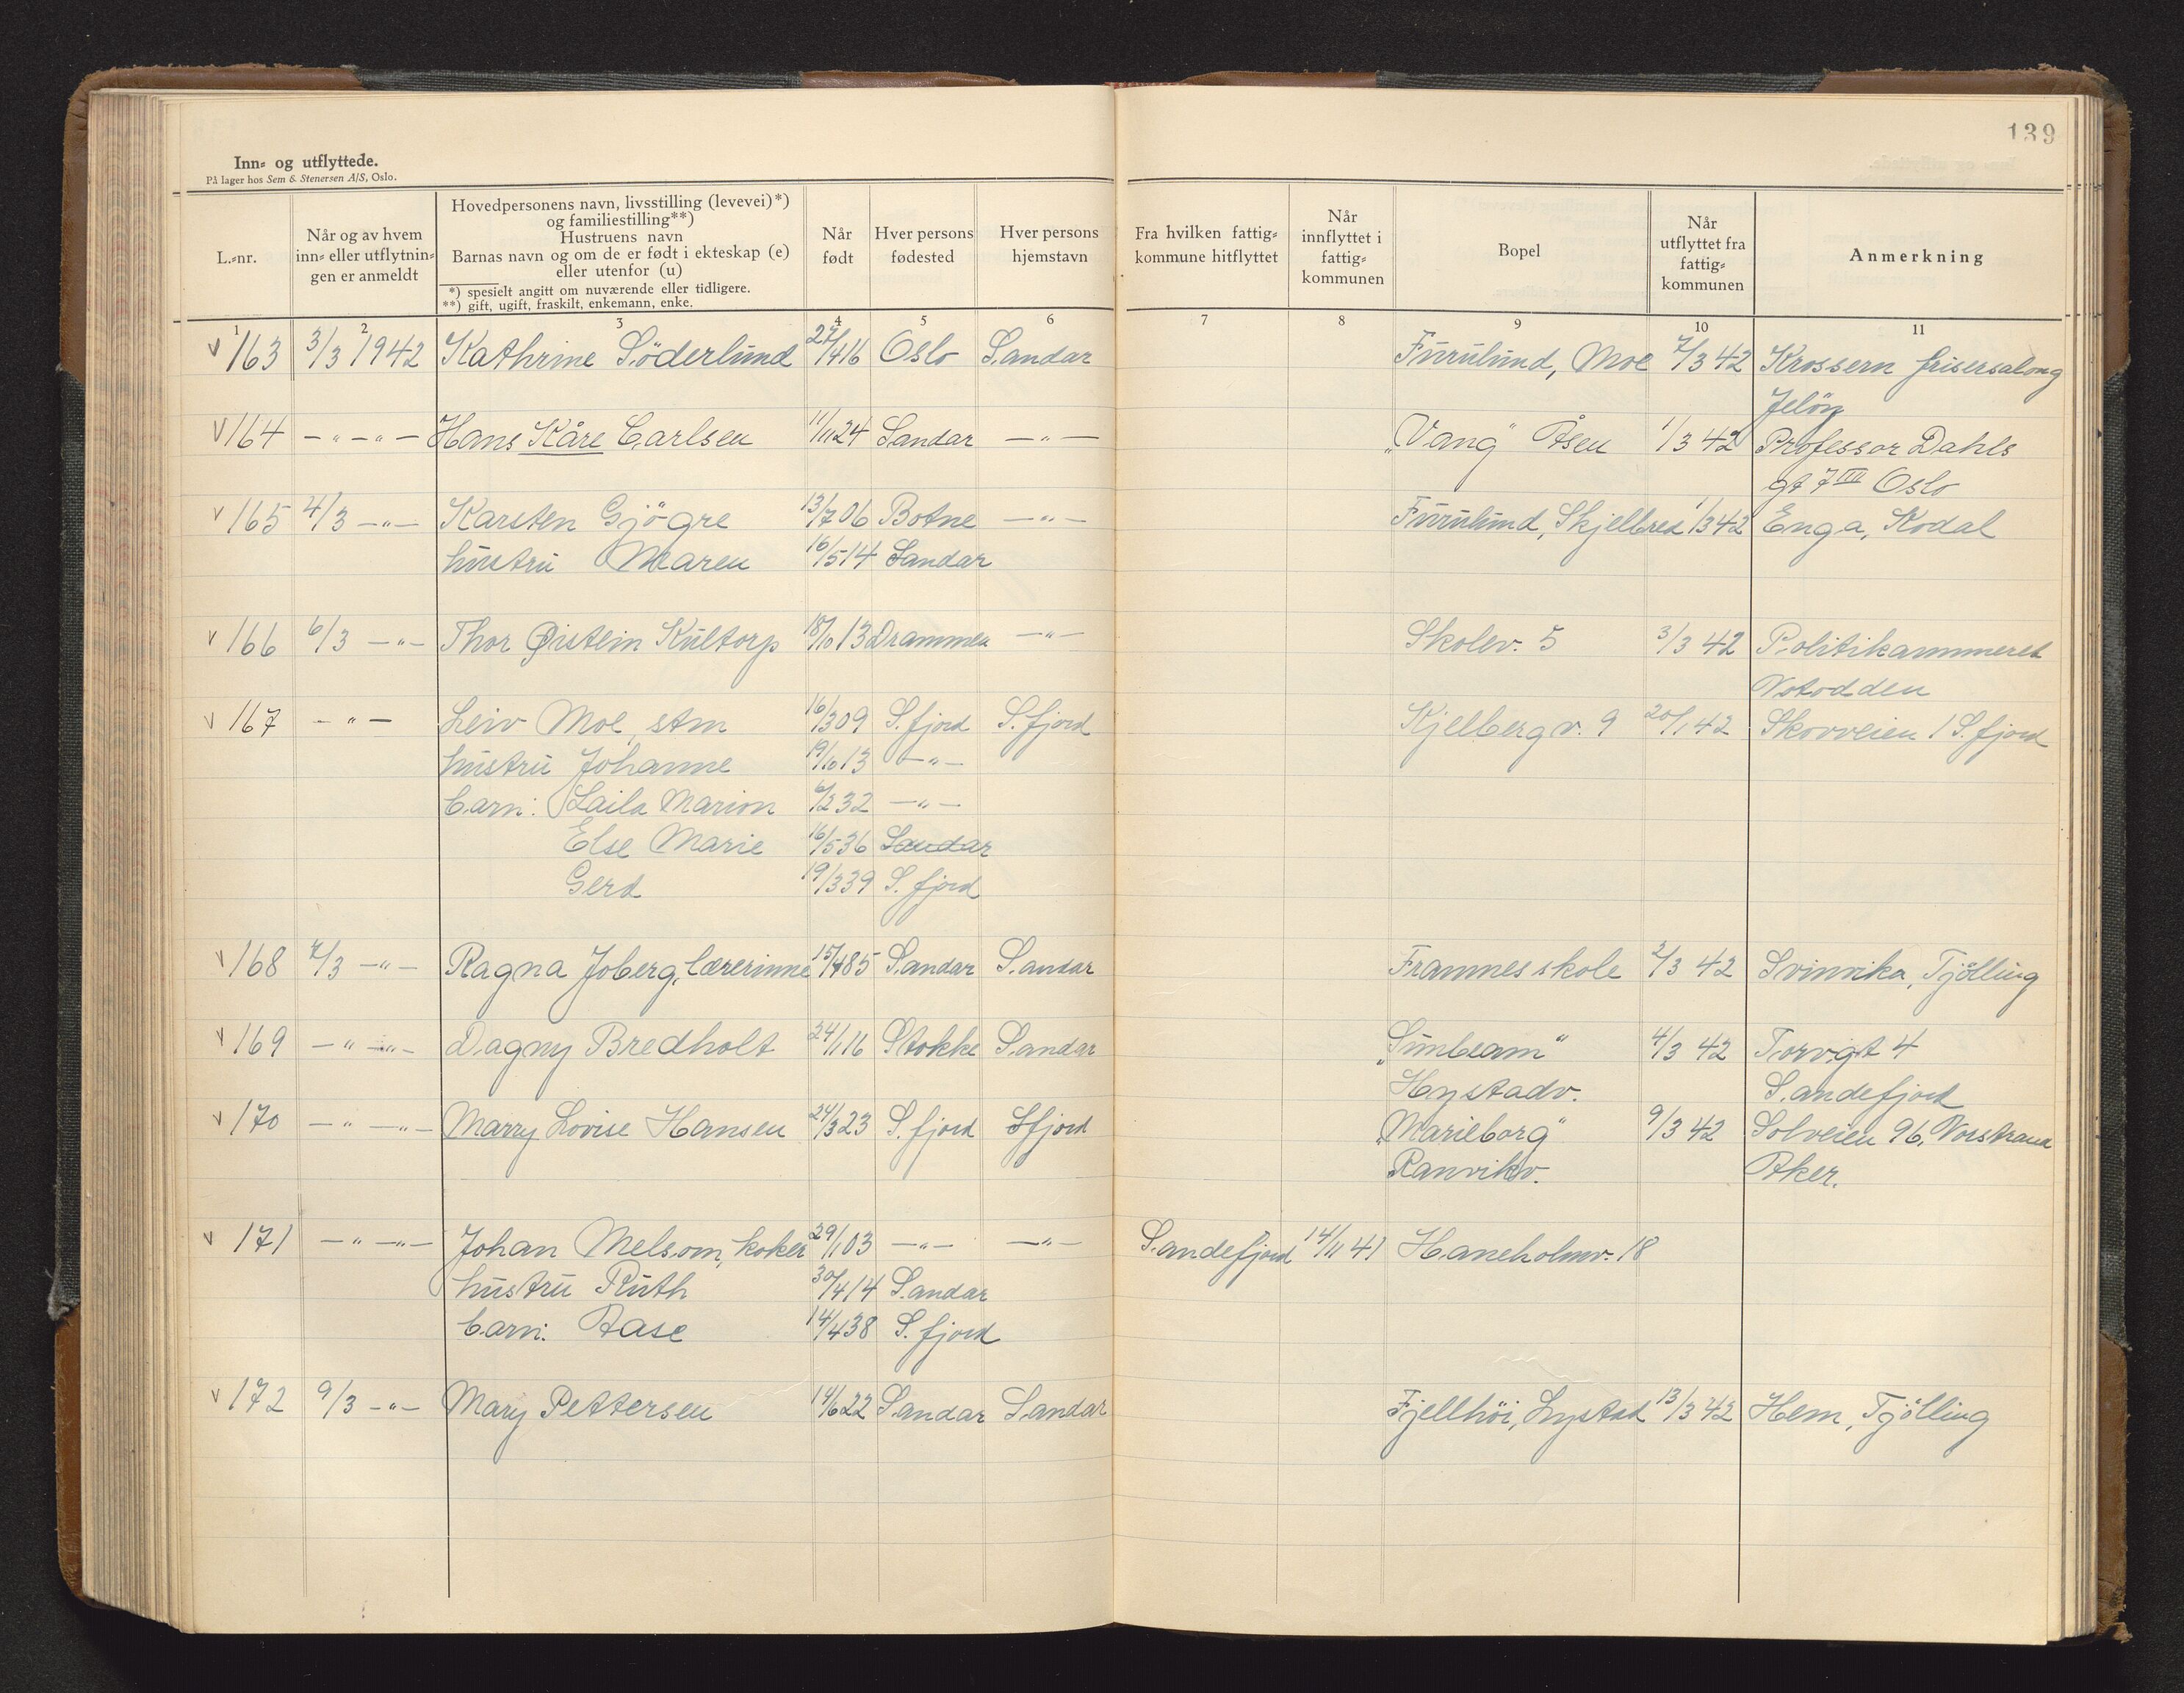 139
Inn- og utflyttede.
På lager hos Sem & Stenersen A/S, Oslo.
L.-nr.
Når og av hvem inn- eller utflytningen er anmeldt
Hovedpersonens navn, livsstilling (levevei)*)
og familiestilling**)
Hustruens navn
Barnas navn og om de er født i ekteskap (e)
eller utenfor (u)
*) spesielt angitt om nuværende eller tidligere.
**) gift, ugift, fraskilt, enkemann, enke.
Når født
Hver persons fødested
Hver persons hjemstavn
Fra hvilken fattig-kommune hitflyttet
Når innflyttet i fattig-kommunen
Bopel
Når utflyttet fra fattig-kommunen
Anmerkning
1 2 3 4 5 6 7 8 9 10 11
v 163 3/3 1942 Kathrine Söderlund 27/4 16 Oslo Sandar Furulund, Moe 7/3 42 Krossern frisersalong
Jelöy
v 164 —"—"— Hans Kåre Carlsen 11/11 24 Sandar —"— "Vang" Åsen 1/3 42 Professor Dahls
gt 7 III Oslo
v 165 4/3 —"— Karsten Gjögre 13/7 06 Botne —"— Furulund, Skjelbred 1/3 42 Enga, Kodal
hustru Maren 16/5 14 Sandar
v 166 6/3 —"— Thor Øistein Kultorp 18/10 13 Drammen —"— Skolev. 5 3/3 42 Politikammeret
Notodden
v 167 —"— Leiv Moe, stm 16/3 09 S.fjord S.fjord Kjelbergv. 9 20/1 42 Skovveien 1 S.fjord
hustru Johanne 19/10 13 —"—
barn: Laila Marion 6/2 32 —"—
Else Marie 16/5 36 Sandar
Gerd 19/3 39 S.fjord
v 168 7/3 —"— Ragna Joberg, lærerinne 15/4 85 Sandar Sandar Framnes skole 2/3 42 Svinvika, Tjölling
v 169 —"—"— Dagny Bredholt 24/1 16 Stokke Sandar "Sunbeam" 4/3 42 Torvgt 4
Hystadv. Sandefjord
v 170 —"—"— Marry Lovise Hansen 24/3 23 S.fjord Sfjord "Marieborg" 9/3 42 Solveien 96,
Ranvikv. Aker.
v 171 —"—"— Johan Melsom, koker 29/1 03 —"— —"— Sandefjord 14/11 41 Haneholmv. 18
hustru Ruth 30/4 14 Sandar
barn: Aase 14/4 38 S.fjord
v 172 9/3 —"— Mary Pettersen 14/6 22 Sandar Sandar Fjellhöi, 13/3 42 Hem, Tjölling